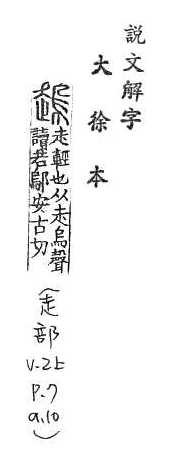 説文解字
大徐本
走輕也从走烏聲
讀若鄔安古切
(走部
V.2上
P.7
a.10)